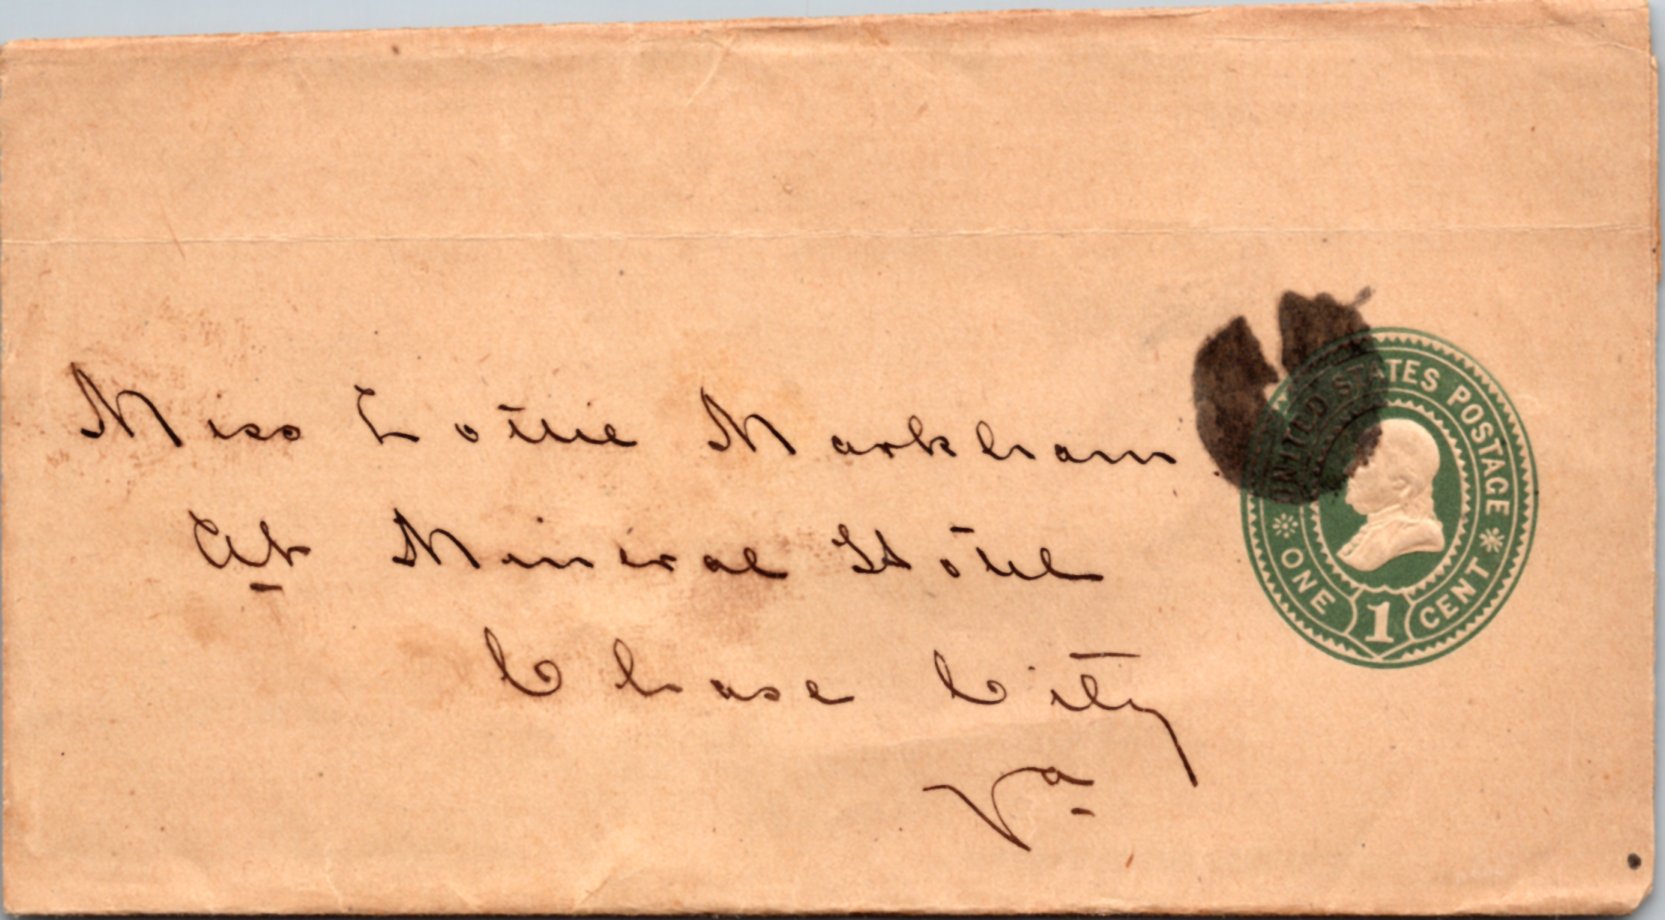 Miss Lottie Markham
At Mineral Hotel
Chase City
Va
UNITED STATES POSTAGE
ONE 1 CENT